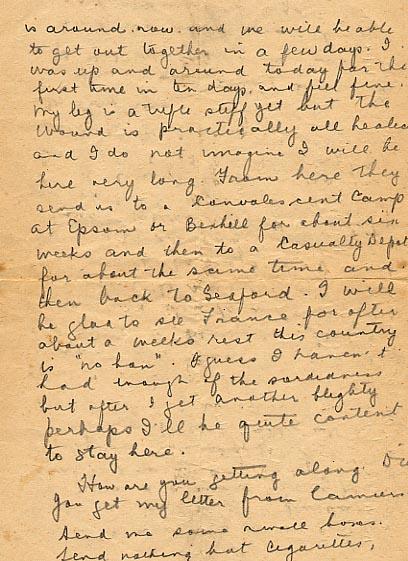 is around now and we will be able
to get out together in a few days. I
was up and around today for the
first time in ten days, and feel fine.
My leg is a trifle stiff yet but the
wound is practically all healed
and I do not imagine I will be
here very long. From here they
send us to a Convalescent Camp
at Epsom or Bexhill for about six
weeks and then to a Casualty Depot
for about the same time and
then back to Seaford. I will
be glad to see France for after
about a weeks rest this country
is "no bon". I guess I haven't
had enough of the sordidness
but after I get another blighty
perhaps I'll be quite content
to stay here.
How are you getting along. Di
you get my letter from Camiers
Send me some small boxes.
Send nothing but cigarettes,